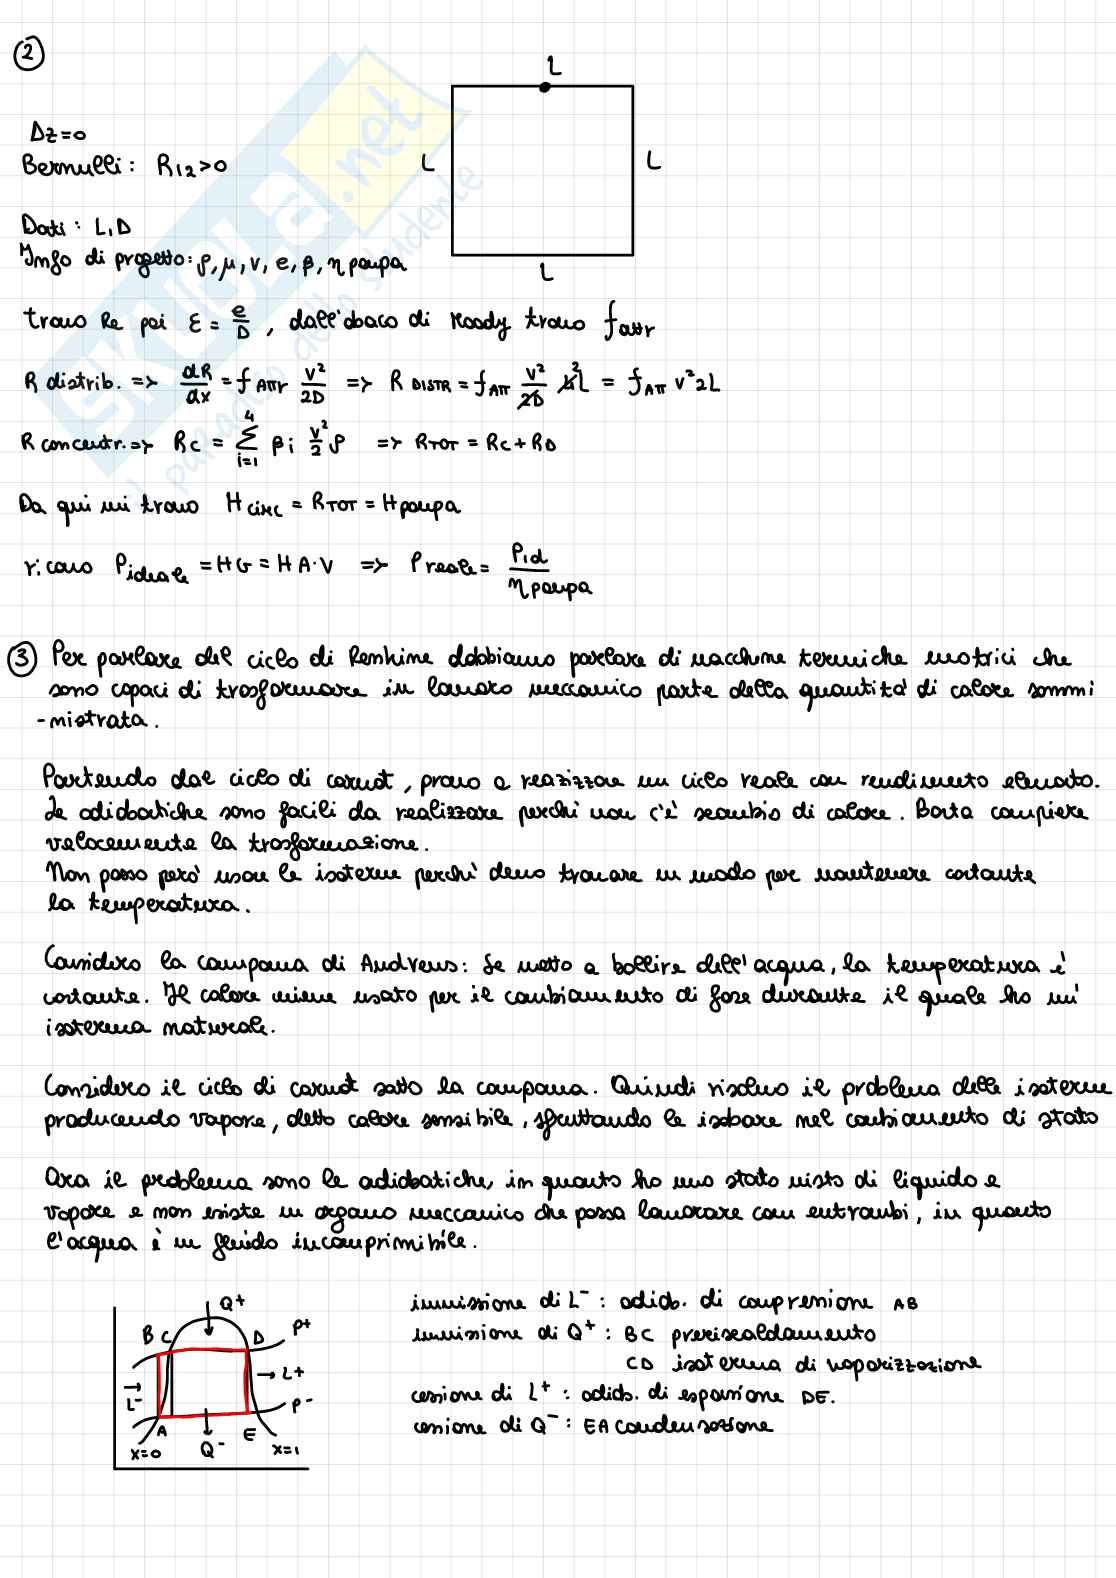 2
L
Δz=0
L
L
Bernulli: R12>0
Dati: L, D
L
Info di progetto: ρ, μ, v, e, β, η pompa
trovo Re poi ε = e/D, dall'abaco di Moody trovo f attr
R distrib. => dR/dx = f Attr v²/2D => R DISTR = f Att v²/2D 4L = f Att v² 2L
R concentr. => Rc = Σ i=1 4 βi v²/2 ρ => RTOT = Rc + RD
Da qui mi trovo H circ = RTOT = H pompa
ricavo P ideale = HG = HA·V => P reale = Pid/η pompa
3 Per parlare del ciclo di Renkine dobbiamo parlare di macchine termiche motrici che
sono capaci di trasformare in lavoro meccanico parte della quantità di calore sommi
-nistrata.
Partendo dal ciclo di carnot, provo a reazizzare un ciclo reale con rendimento elevato.
Le adiabatiche sono facili da realizzare perchè non c'è scambio di calore. Basta compiere
velocemente la trasformazione.
Non posso però usare le isoterme perchè devo trovare un modo per mantenere costante
la temperatura.
Considero la campana di Andrews: Se metto a bollire dell'acqua, la temperatura è
costante. Il calore viene usato per il cambiamento di fase durante il quale ho un'
isoterma naturale.
Considero il ciclo di carnot sotto la campana. Quindi risolvo il problema delle isoterme
producendo vapore, detto calore sensibile, sfruttando le isobare nel cambiamento di stato
Ora il problema sono le adiabatiche, in quanto ho uno stato misto di liquido e
vapore e non esiste un organo meccanico che possa lavorare con entrambi, in quanto
l'acqua è un fluido incomprimibile.
Q+
B C D P+
L- L+
P-
A E
x=0 Q- x=1
immissione di L-: adiab. di compressione AB
immissione di Q+: BC preriscaldamento
CD isoterma di vaporizzazione
cessione di L+: adiab. di espansione DE.
cessione di Q-: EA condensazione
SKUOLA.net
il paradiso dello studente